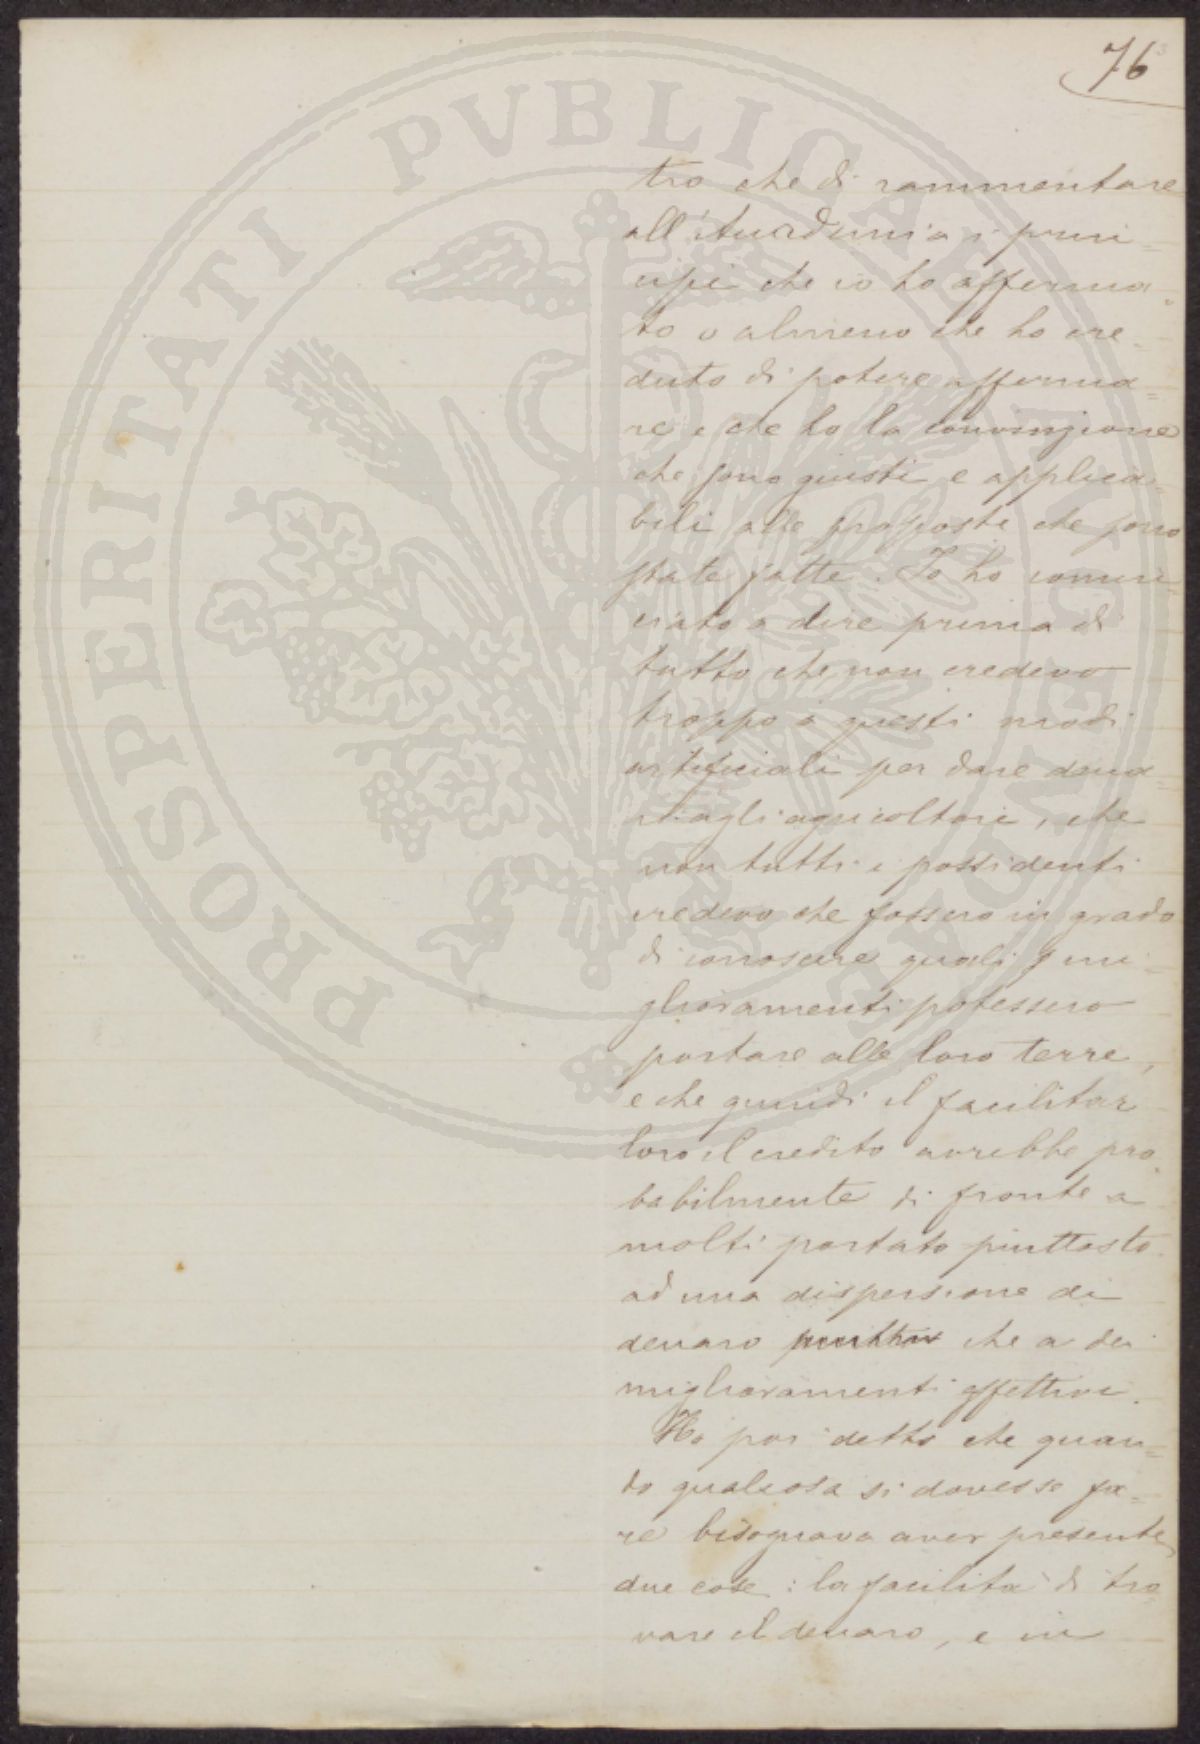 76
tro che di rammentare
all'Accademia i prin=
cipi che io ho afferma=
to o almeno che ho cre=
duto di potere afferma=
re e che ho la convinzione
che sono giusti e applica=
bili alle proposte che sono
state fatte. Io ho comin=
ciato a dire prima di
tutto che non credevo
troppo a questi modi
artificiali per dare dena=
ri agli agricoltori, che
non tutti i possidenti
credevo che fossero in grado
di conoscere quali mi=
glioramenti potessero
portare alle loro terre,
e che quindi il facilitar
loro il credito avrebbe pro=
babilmente di fronte a
molti portato piuttosto
ad una dispersione di
denaro che a dei
miglioramenti effettivi.
Ho poi detto che quan=
do qualcosa si dovesse fa=
re bisognava aver presente
due cose: la facilità di tro=
vare il denaro, e in
PROSPERITATI PVBLICAE AVGENDAE